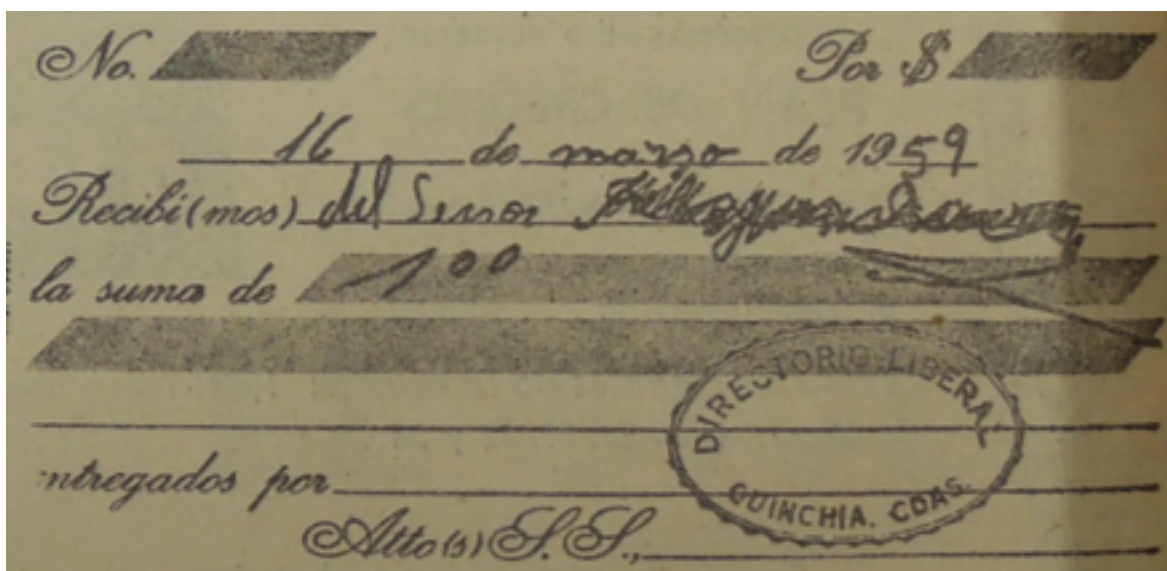 No. Por $
16 de marzo de 1959
Recibí(mos) del Senor
la suma de 100
DIRECTORIO LIBERAL
QUINCHIA. CDAS.
ntregados por
Atto(s) S. S.,